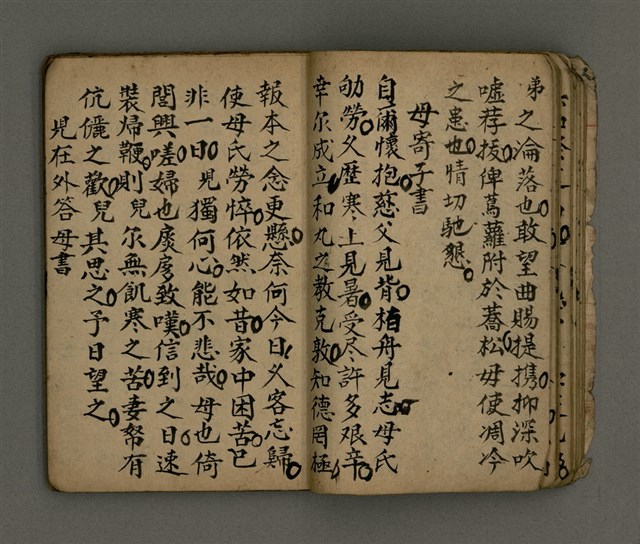 弟之淪落也敢望曲賜提携抑深吹
噓荐拔俾蔦蘿附於蕎松毋使凋今
之患也情切馳懇
母寄子書
自爾懷抱慈父見背栢舟見志母氏
劬勞久歷寒上見暑受尽許多艰辛
幸尔成立和丸之教克敦知德罔極
報本之念更懸奈何今日乂客忘歸
使母氏勞悴依然如昔家中困苦已
非一日児獨何心能不悲哉母也倚
閭興嗟婦也扊扅致嘆信到之日速
裝歸鞭則兒尔無飢寒之苦妻帑有
伉儷之歡兒其思之予日望之
児在外答母書